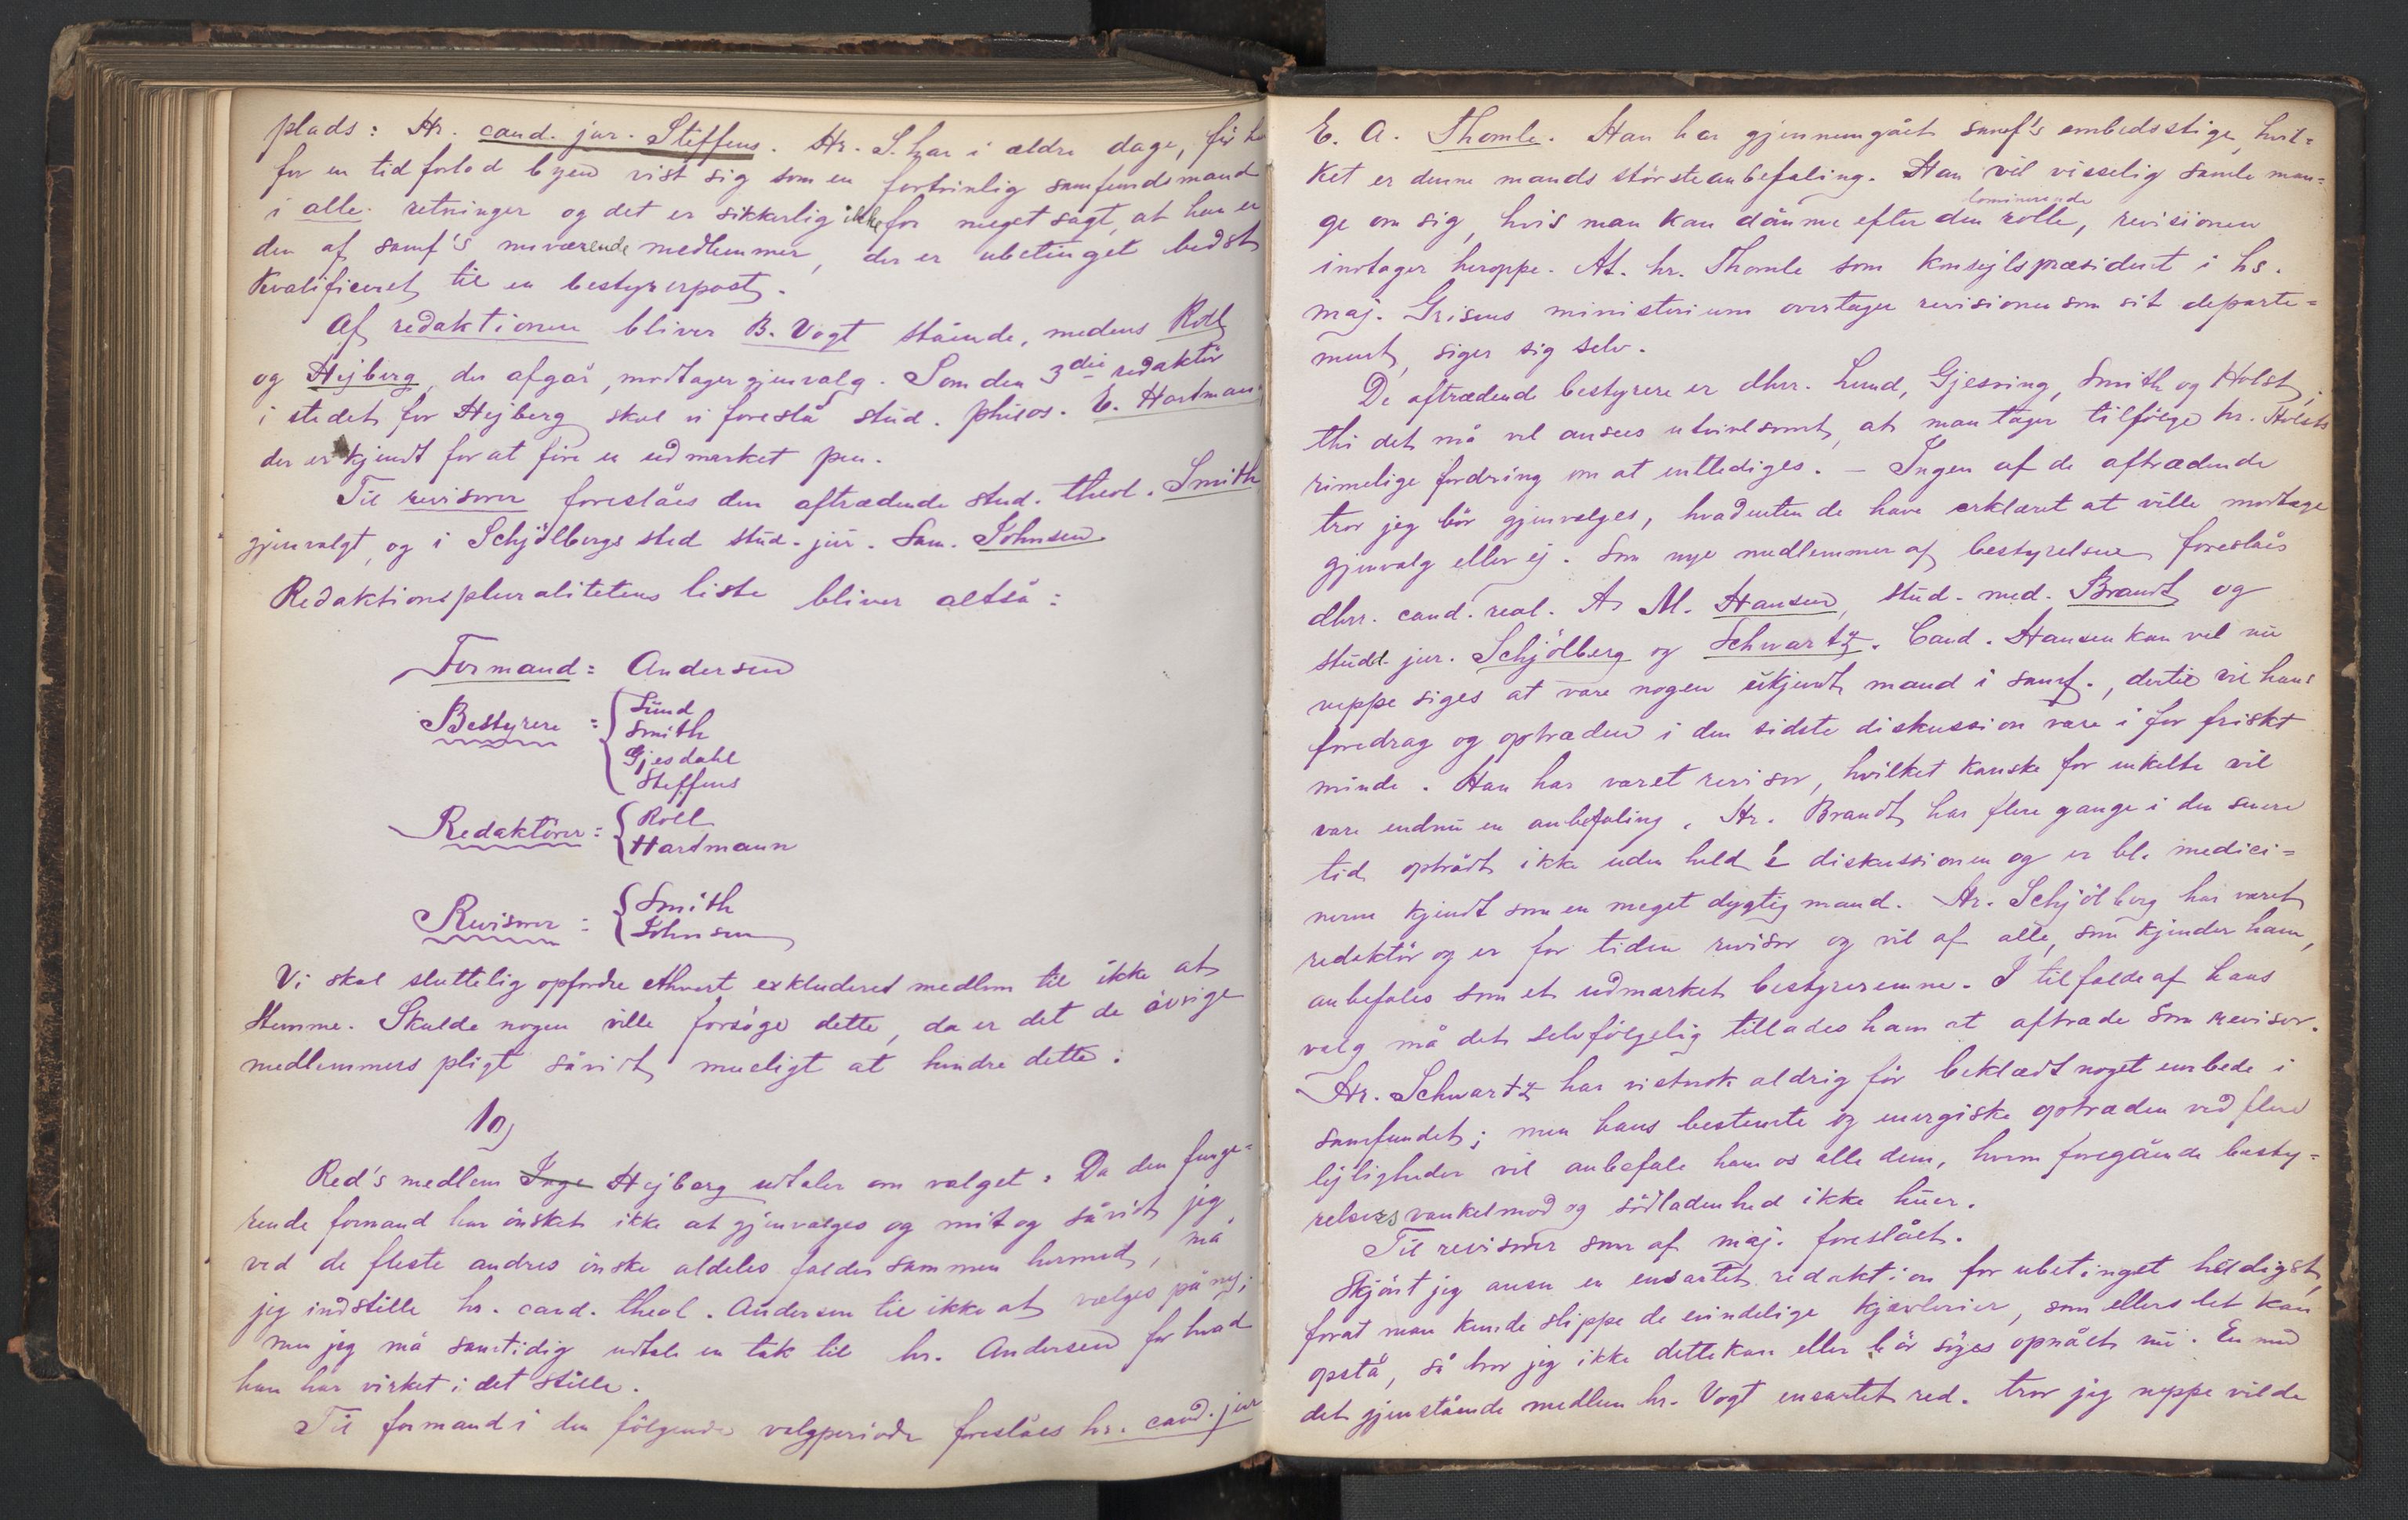 plads: Hr. cand. jur. Steffens. Hr. S. har i ældre dage, før h
for en tid forlod byen vist sig som en fortrinlig samfundsmand
i alle retninger og det er sikkerlig ikke for meget sagt, at han er
den af samf's nuværende medlemmer, der er ubetinget bedst
kvalificeret til en bestyrerpost.
Af redaktionen bliver B. Vogt stående, medens Roll
og Hejberg, der afgår, modtager gjenvalg. Som den 3die redaktör
i stedet for Hejberg skal vi foreslå stud. philos. E. Hartman
der er kjendt for at före en udmærket pen.
Til revisorer foreslåes den aftrædende stud. theol. Smith
gjenvalgt, og i Schjölbergs sted stud. jur. Sam. Johnsen.
Redaktionspluralitetens liste bliver altså:
Formand: Andersen
Bestyrere: Lund
Smith
Gjesdahl
Steffens
Redaktörer: Roll
Hartmann
Revisorer: Smith
Johnsen
Vi skal sluttelig opfordre ethvert exkluderet medlem til ikke at
stemme. Skulde nogen ville forsöge dette, da er det de övrige
medlemmers pligt såvidt mueligt at hindre dette.
10)
Red's medlem Inge Hejberg udtaler om valget: Da den funge=
rende formand har önsket ikke at gjenvælges og mit og såvidt jeg
ved de fleste andres önske aldeles falder sammen hermed, må
jeg indstille hr. cand. theol. Andersen til ikke at vælges på ny;
men jeg må samtidig udtale en tak til hr. Andersen for hvad
han har virket i det stille.
Til formand i den fölgende valgperiode foreslåes hr. cand. jur
E. A. Thomle. Han har gjennemgået samf's embedsstige, hvil=
ket er denne mands störste anbefaling. Han vil visselig samle man=
ge om sig, hvis man kan dömme efter den dominerende rolle, revisionen
indtager heroppe. At hr. Thomle som konsejlspræsident i hs.
maj. Grisens ministerium overtager revisionen som sit departe=
ment, siger sig selv.
De aftrædende bestyrere er dhrr. Lund, Gjesving, Smith og Holst,
thi det må vel ansees utvivlsomt, at man tager tilfölge hr. Holsts
rimelige fordring om at entlediges. – Ingen af de aftrædende
tror jeg bör gjenvælges, hvadenten de have erklæret at ville modtage
gjenvalg eller ej. Som nye medlemmer af bestyrelsen foreslåes
dhrr. cand. real. A M. Hansen, stud. med. Brandt og
studd. jur. Schjölberg og Schwartz. Cand. Hansen kan vel nu
neppe siges at være nogen ukjendt mand i samf., dertil vil hans
foredrag og optræden i den sidste diskussion være i for friskt
minde. Han har været revisor, hvilket kanske for enkelte vil
være endnu en anbefaling. Hr. Brandt har flere gange i den senere
tid optrådt ikke uden held i diskussionen og er bl. medici=
nerne kjendt som en meget dygtig mand. Hr. Schjölberg har været
redaktör og er for tiden revisor og vil af alle, som kjender ham,
anbefales som et udmærket bestyreremne. I tilfælde af hans
valg må det selvfölgelig tillades ham at aftræde som revisor.
Hr. Schwartz har vistnok aldrig för beklædt noget embede i
samfundet; men hans bestemte og energiske optræden ved flere
lejligheder vil anbefale ham os alle dem, hvem foregående besty=
relsers vankelmod og södladenhed ikke huer.
Til revisorer som af maj. foreslået.
Skjönt jeg anser en ensartet redaktion for ubetinget heldigst,
forat man kunde slippe de evindelige kjævlerier, som ellers let kan
opstå, så tror jeg ikke dette kan eller bör söges opnået nu. En med
det gjenstående medlem hr. Vogt ensartet red. tror jeg neppe vilde